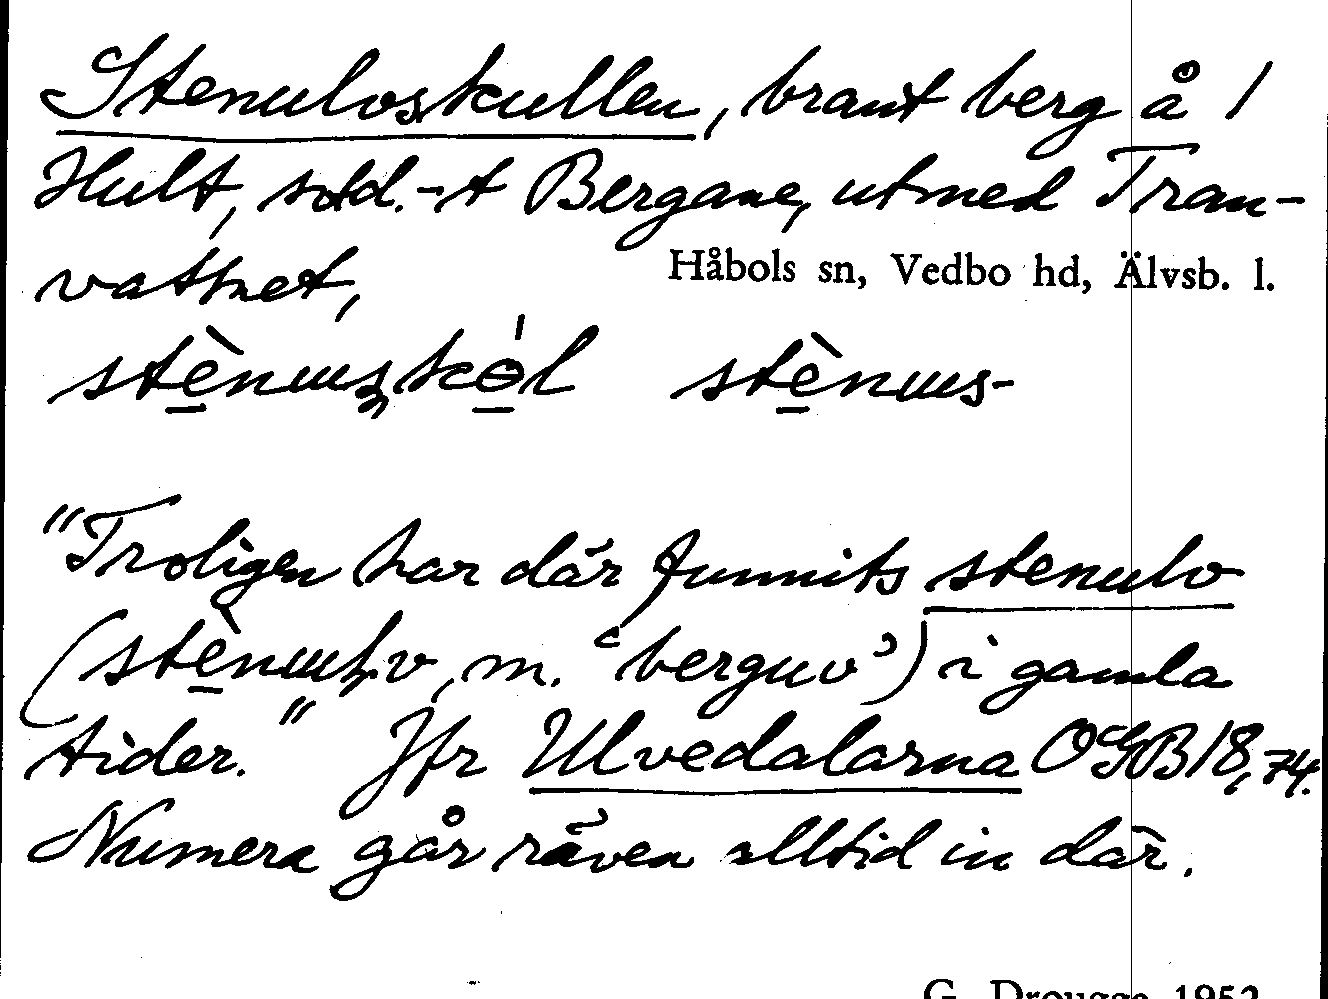 Stenulvskullen, brant berg å 1
Hult, sdd.-t Bergane, utmed Tran-
vattnet,
Håbols sn, Vedbo hd, Älvsb. l.
"Troligen har där funnits stenulv
m. ‘berguv’) i gamla
tider." Jfr Ulvedalarna OGB 18, 74.
Numera går räven alltid in där.
G. Drougge 1952